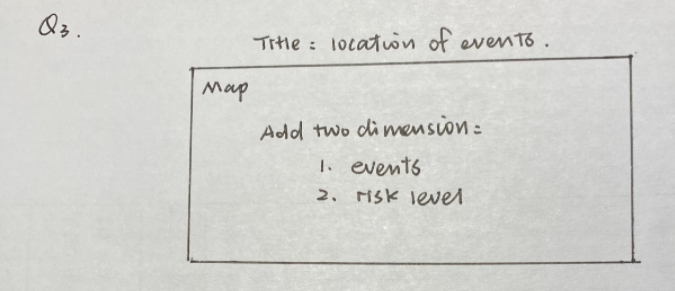 Q3.
Title : location of events.
Map
Add two dimension :
1. events
2. risk level